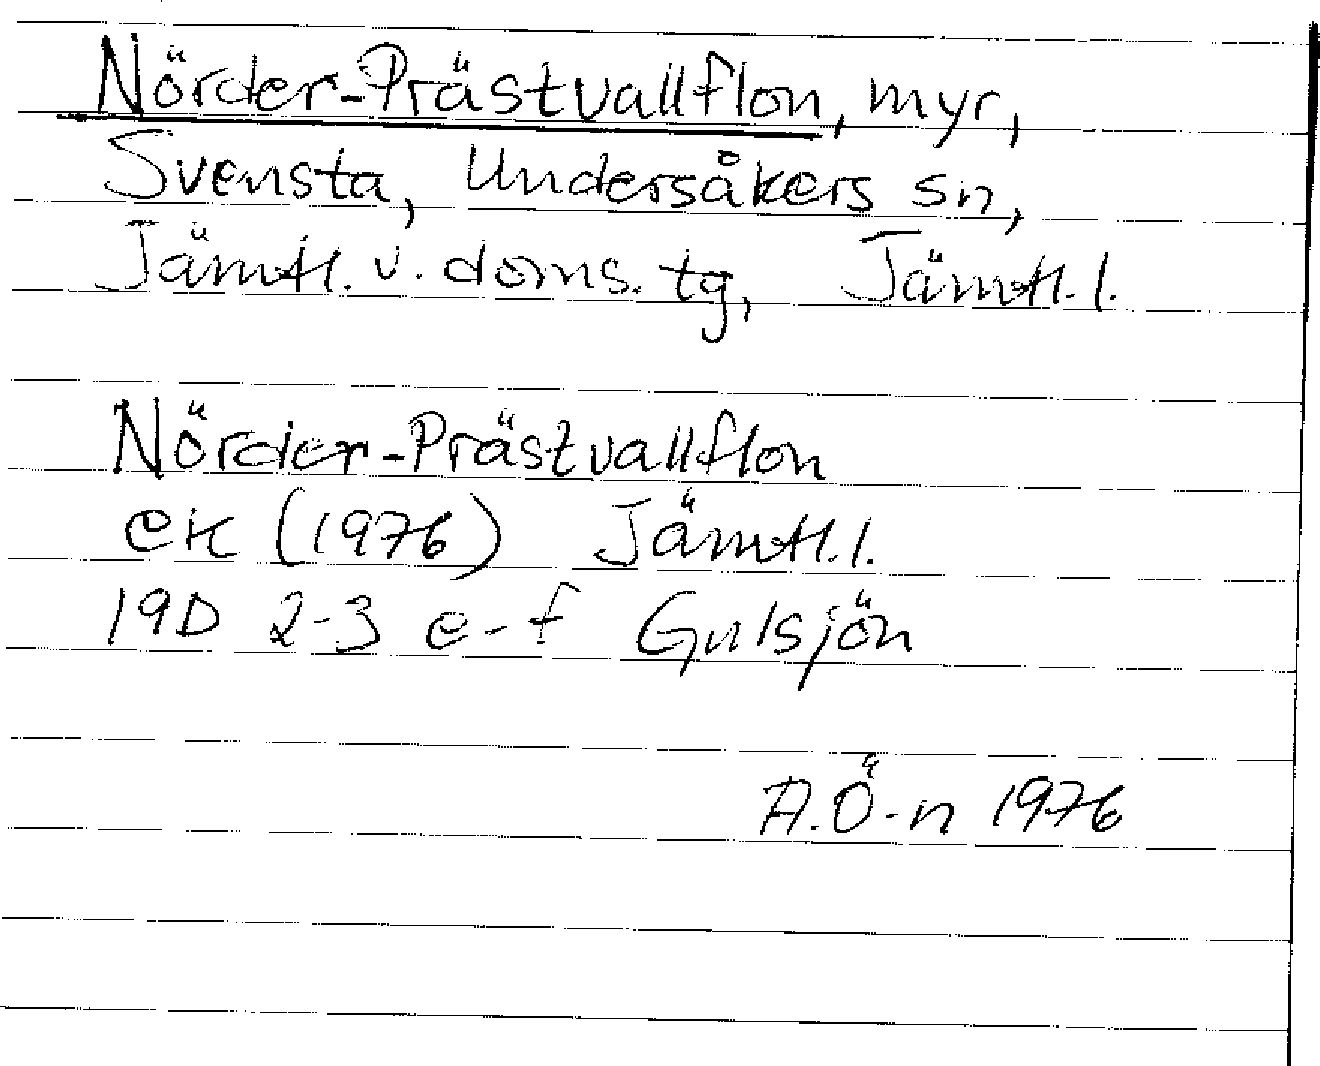 Nörder-Prästvallflon, myr,
Svensta, Undersåkers sn,
Jämtl. v. doms. tg, Jämtl. l.
Nörder-Prästvallflon
ek (1976) Jämtl. l.
19D 2-3 e-f Gulsjön
A.Ö-n 1976